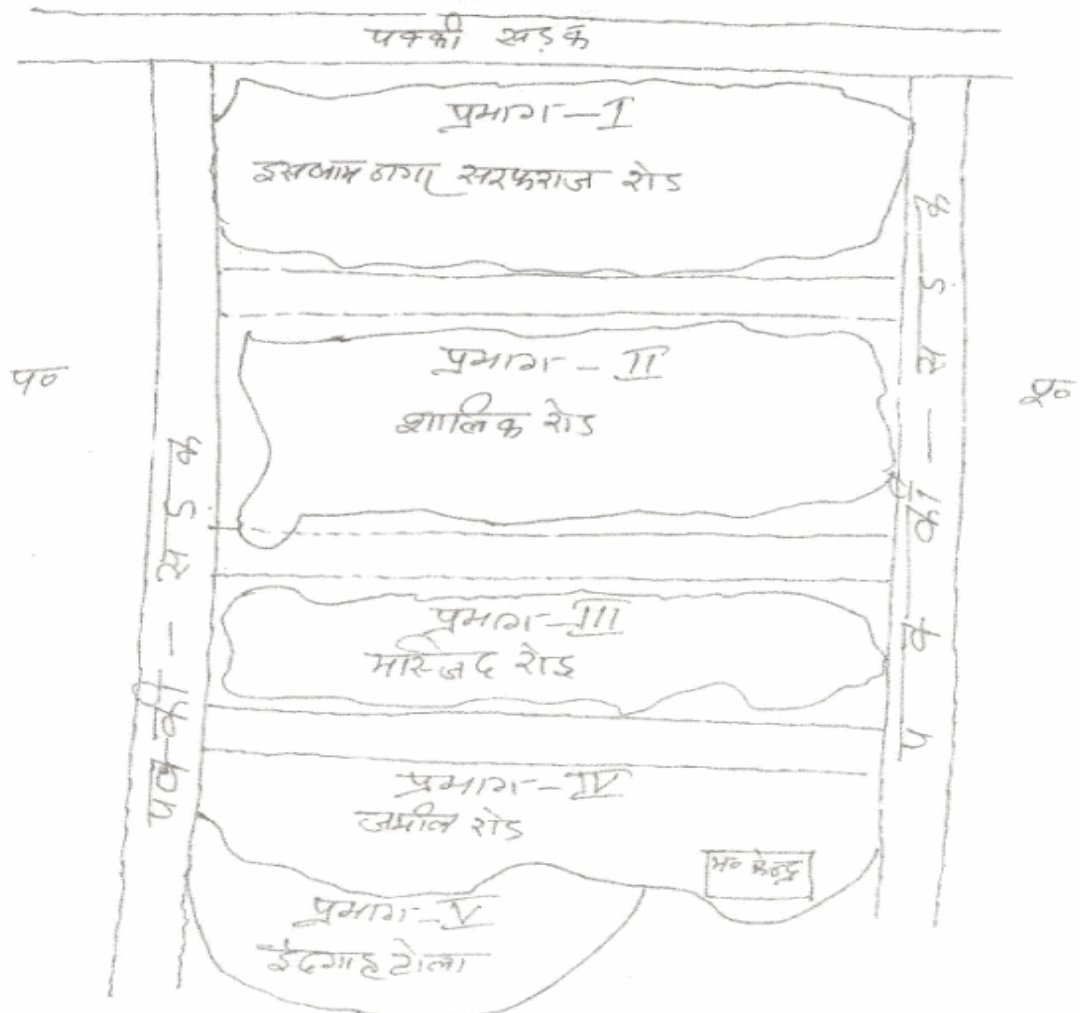 पक्की सड़क
प्रभाग-I
इसलाम नगर सरफराज रोड
प्रभाग-II
शालिक रोड
प०
पू०
पक्की-सडक
पक्की-सड़क
प्रभाग-III
मस्जिद रोड
प्रभाग-IV
जमील रोड
म० केन्द्र
प्रभाग-V
ईदगाह टोला